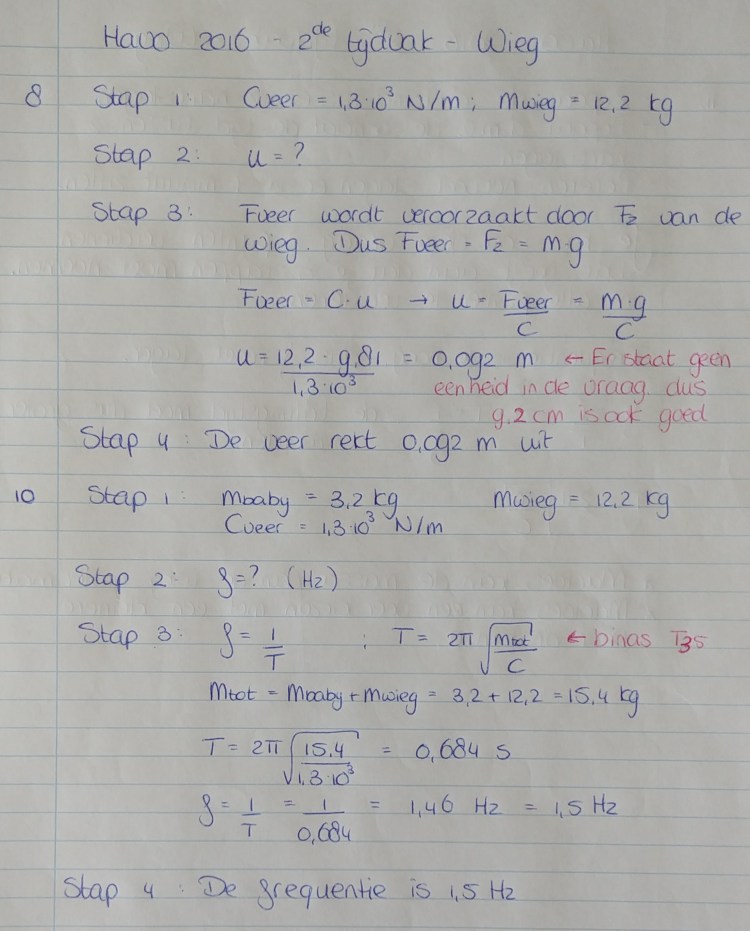 Havo 2016 - 2de tijdvak - Wieg
8 Stap 1: Cveer = 1,3·10³ N/m; Mwieg = 12,2 kg
Stap 2: u = ?
Stap 3: Fveer wordt veroorzaakt door Fz van de
wieg. Dus Fveer = Fz = m·g
Fveer = C·u → u = Fveer/C = m·g/C
u = 12,2 · 9,81/1,3·10³ = 0,092 m ← Er staat geen
eenheid in de vraag dus
9,2 cm is ook goed
Stap 4: De veer rekt 0,092 m uit
10 Stap 1: Mbaby = 3,2 kg Mwieg = 12,2 kg
Cveer = 1,3·10³ N/m
Stap 2: f = ? (Hz)
Stap 3: f = 1/T ; T = 2π √(mtot/C) ← binas T35
Mtot = Mbaby + Mwieg = 3,2 + 12,2 = 15,4 kg
T = 2π √(15,4/1,3·10³) = 0,684 s
f = 1/T = 1/0,684 = 1,46 Hz = 1,5 Hz
Stap 4: De frequentie is 1,5 Hz